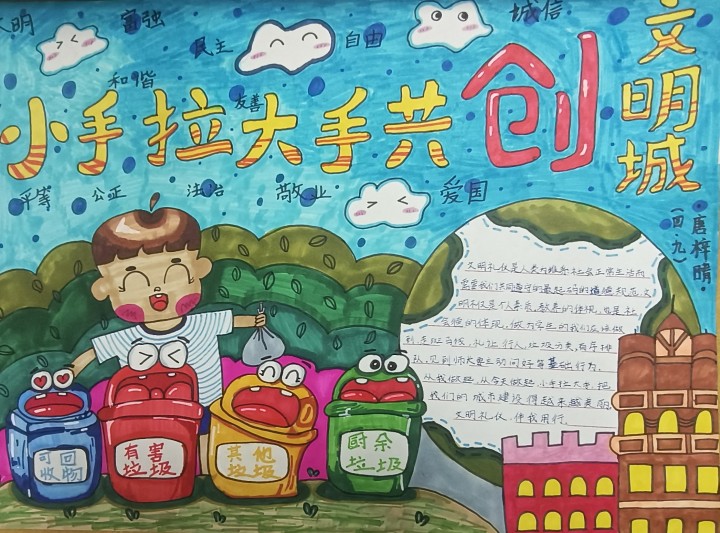 文明
富强
民主
自由
诚信
和谐
友善
小手拉大手共创
文明城
平等
公正
法治
敬业
爱国
(四、九)
唐梓晴
文明礼仪是人类为维系社会正常生活而
需要我们共同遵守的最起码的道德规范,文
明礼仪是个人素质、教养的体现,也是社
会公德的体现,做为学生的我们应该做
到
礼让行人,垃圾分类,有序排
队,见到师长要主动问好等基础行为。
从我做起,从今天做起,小手拉大手,把
我们的城市建设得越来越美丽,
文明礼仪,伴我同行.
可回
收物
有害
垃圾
其他
垃圾
厨余
垃圾